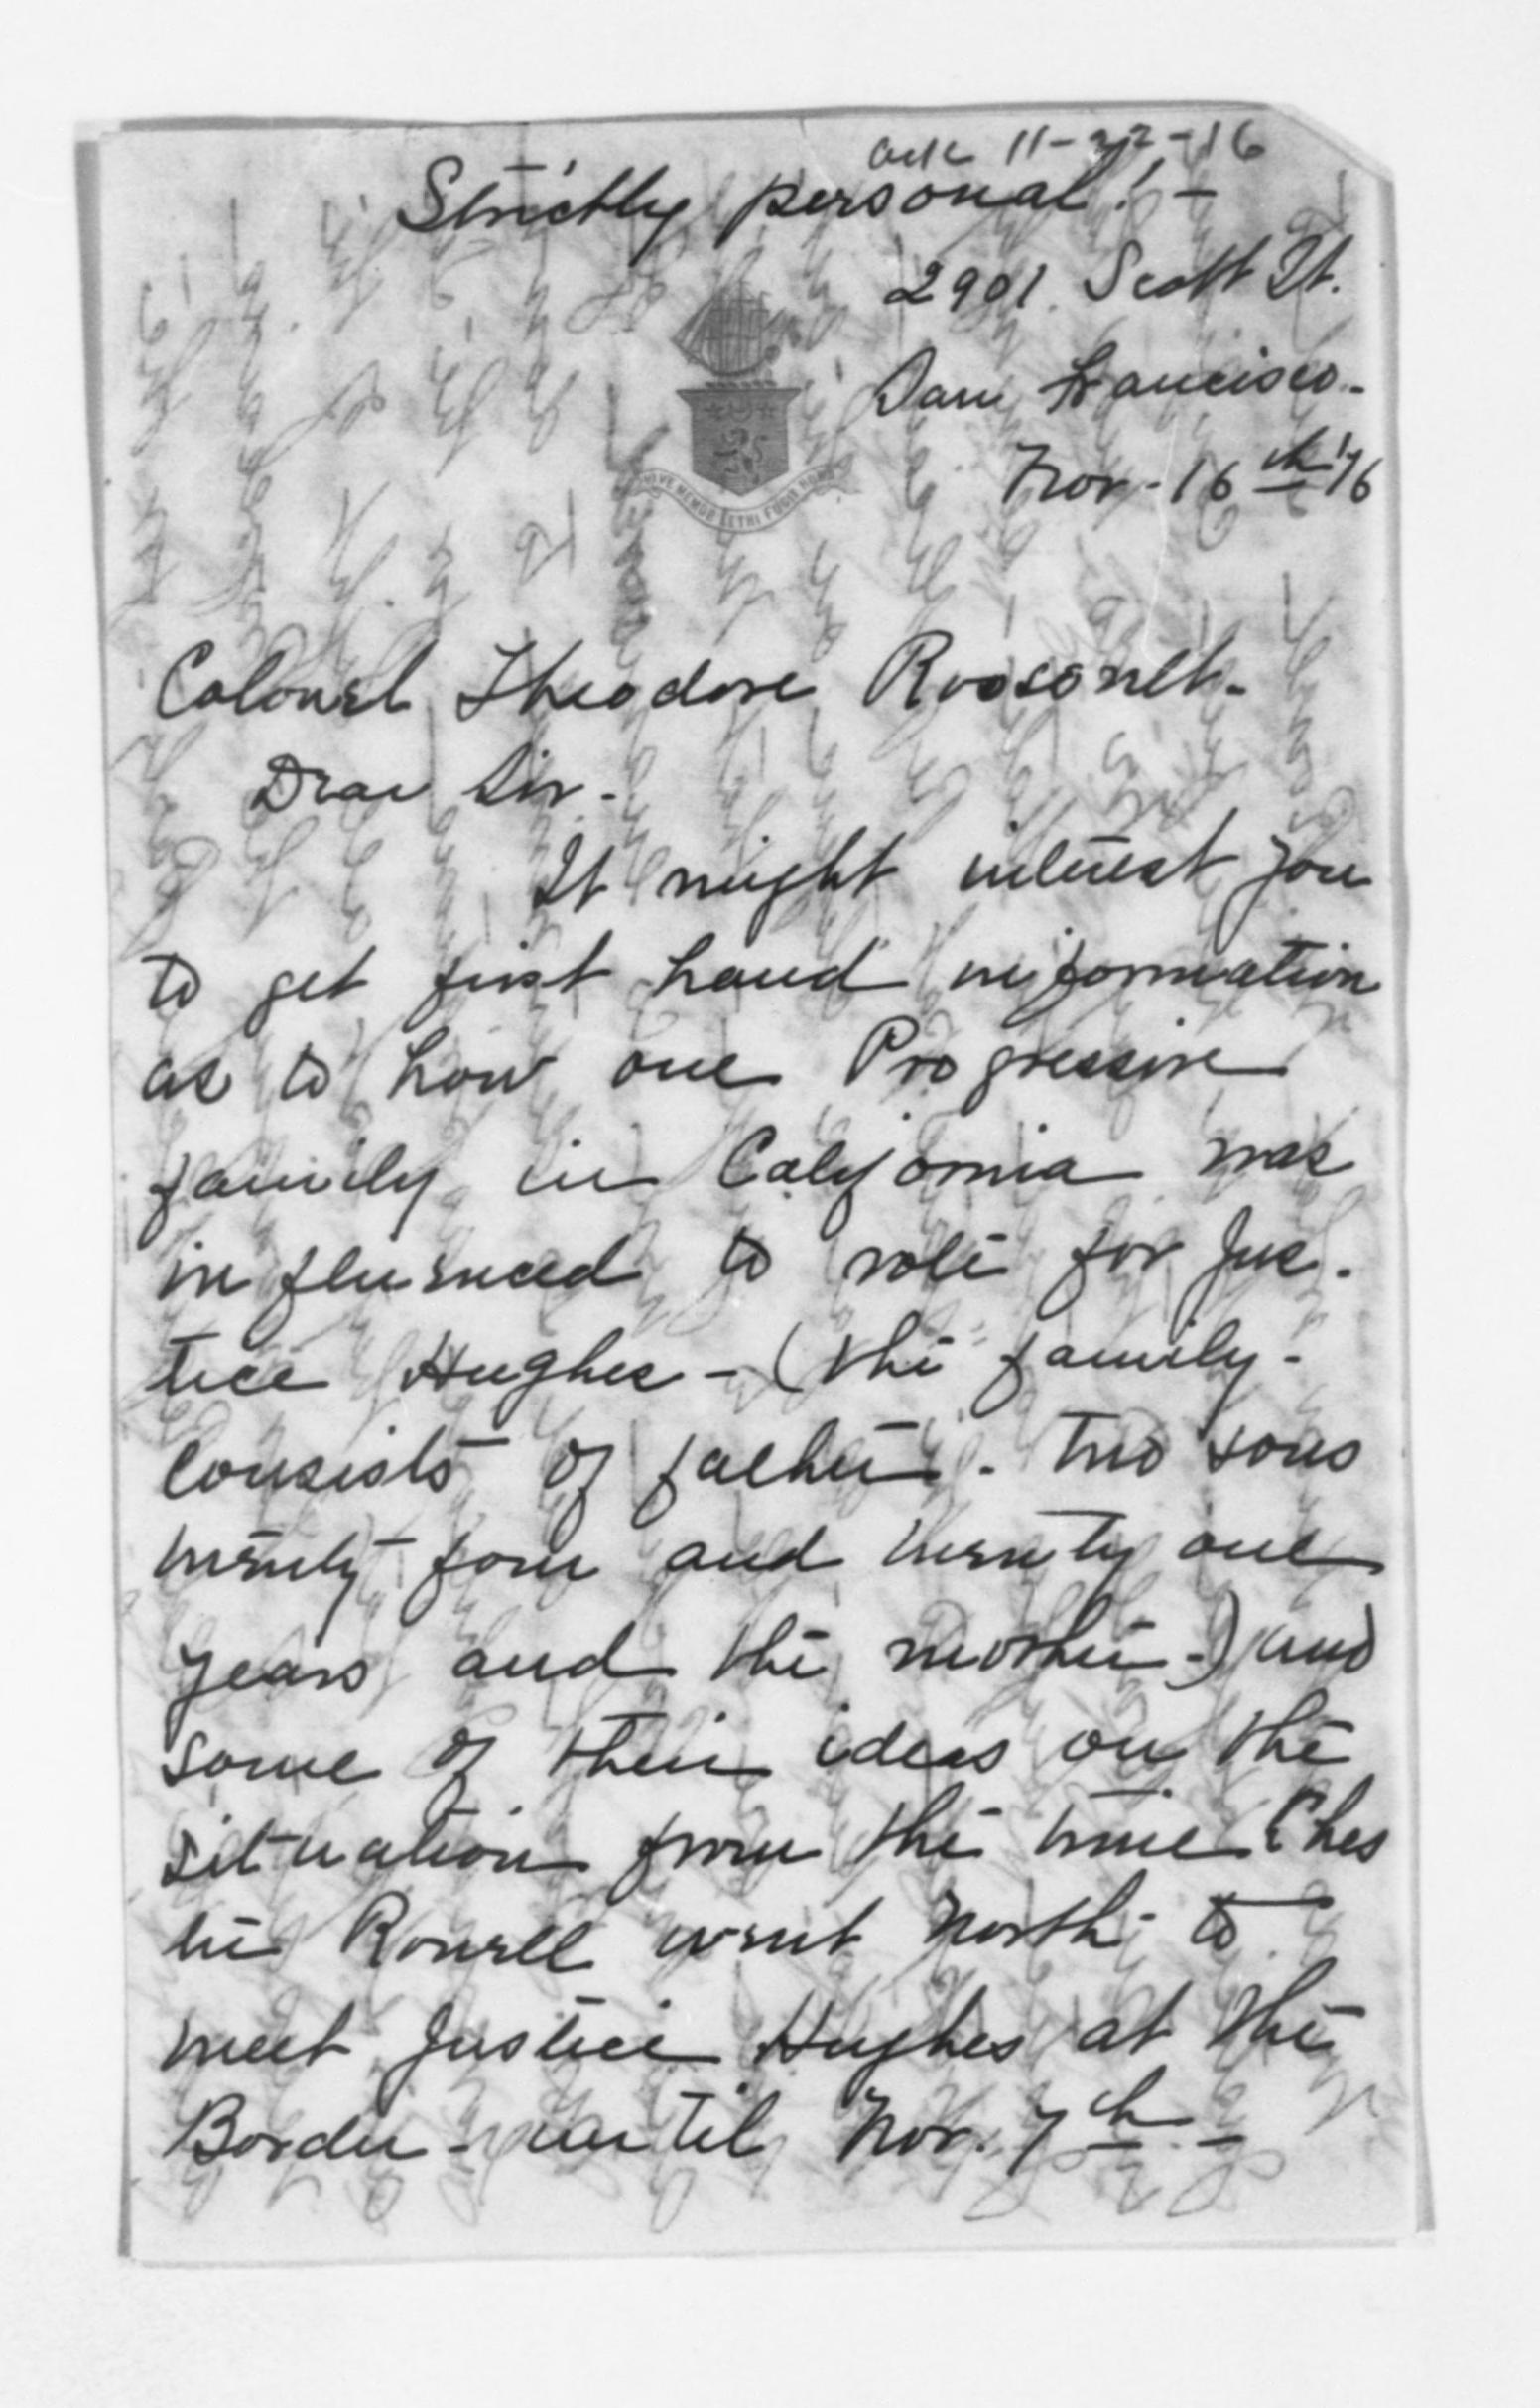 ack 11-22-16
Strictly personal! -
2901 Scott St.
San Francisco -
Nov - 16th '16
VIVE MEMOR LETHI FUGIT HORA
Colonel Theodore Roosevelt -
Dear Sir -
It might interest you
to get first hand information
as to how one Progressive
family in California was
influenced to vote for Jus-
tice Hughes - (the family -
consists of father - two sons
twenty four and twenty one
years and the mother -) and
some of their ideas on the
situation from the time Ches
ter Rowell went North to
meet Justice Hughes at the
Border - until Nov. 7th -